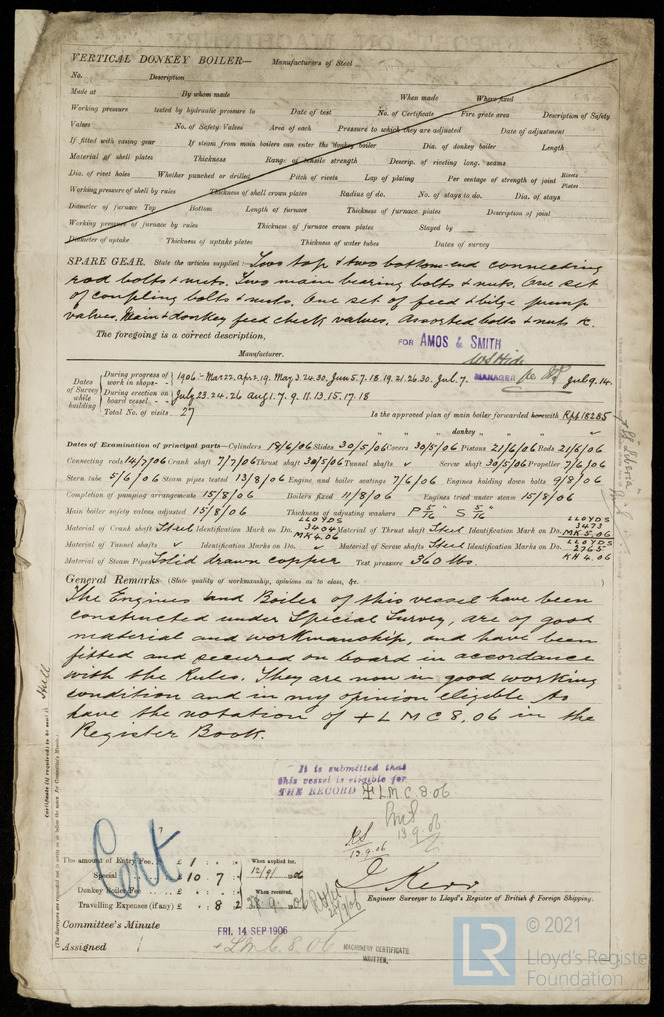 VERTICAL DONKEY BOILER— Manufacturers of Steel
No. Description
Made at By whom made When made Where fixed
Working pressure tested by hydraulic pressure to Date of test No. of Certificate Fire grate area Description of Safety
Valves No. of Safety Valves Area of each Pressure to which they are adjusted Date of adjustment
If fitted with easing gear If steam from main boilers can enter the donkey boiler Dia. of donkey boiler Length
Material of shell plates Thickness Range of tensile strength Descrip. of riveting long. seams
Dia. of rivet holes Whether punched or drilled Pitch of rivets Lap of plating Per centage of strength of joint Rivets Plates
Working pressure of shell by rules Thickness of shell crown plates Radius of do. No. of stays to do. Dia. of stays
Diameter of furnace Top Bottom Length of furnace Thickness of furnace plates Description of joint
Working pressure of furnace by rules Thickness of furnace crown plates Stayed by
Diameter of uptake Thickness of uptake plates Thickness of water tubes Dates of survey
SPARE GEAR. State the articles supplied :— Two top & two bottom-end connecting
rod bolts & nuts. Two main bearing bolts & nuts. One set
of coupling bolts & nuts. One set of feed & bilge pump
valves. Main & donkey feed check valves. Assorted bolts & nuts &c.
The foregoing is a correct description, FOR AMOS & SMITH
Manufacturer. MANAGER
Dates of Survey while building
During progress of work in shops - - 1906:- Mar.22. Apr.19. May.3.24.30. Jun.5.7.18.19.21.26.30. Jul.7. Jul.9.14.
During erection on board vessel - - - July 23.24.26 Aug 1.7.9.11.13.15.17.18
Total No. of visits 27 Is the approved plan of main boiler forwarded herewith
" " " donkey " " "
Dates of Examination of principal parts—Cylinders 18/6/06 Slides 30/5/06 Covers 30/5/06 Pistons 21/6/06 Rods 21/6/06
Connecting rods 14/7/06 Crank shaft 7/7/06 Thrust shaft 30/5/06 Tunnel shafts ✓ Screw shaft 30/5/06 Propeller 7/6/06
Stern tube 5/6/06 Steam pipes tested 13/8/06 Engine and boiler seatings 7/6/06 Engines holding down bolts 9/8/06
Completion of pumping arrangements 15/8/06 Boilers fixed 11/8/06 Engines tried under steam 15/8/06
Main boiler safety valves adjusted 15/8/06 Thickness of adjusting washers P 5/16" S 5/16"
Material of Crank shaft Steel Identification Mark on Do. LLOYDS 3404 MK 4.06 Material of Thrust shaft Steel Identification Mark on Do. LLOYDS 3473 MK 5.06
Material of Tunnel shafts ✓ Identification Marks on Do. ✓ Material of Screw shafts Steel Identification Marks on Do. LLOYDS 2765 KH 4.06
Material of Steam Pipes Solid drawn copper Test pressure 360 lbs.
General Remarks (State quality of workmanship, opinions as to class, &c.
The Engines and Boiler of this vessel have been
constructed under Special Survey, are of good
material and workmanship, and have been
fitted and secured on board in accordance
with the Rules. They are now in good working
condition and in my opinion eligible to
have the notation of + L M C 8,06 in the
Register Book.
Hull
Certificate (if required) to be sent to
It is submitted that
this vessel is eligible for
THE RECORD + L.M.C. 8.06.
13.9.06
13.9.06
Cert
The amount of Entry Fee. . £ 1 : : When applied for,
Special . . . £ 10 . 7 : 12/9/ 06
Donkey Boiler Fee . . . £ : : When received,
Travelling Expenses (if any) £ : 8 2
Engineer Surveyor to Lloyd's Register of British & Foreign Shipping.
Committee's Minute FRI. 14 SEP 1906
Assigned + L.M.C. 8.06 MACHINERY CERTIFICATE WRITTEN.
© 2021
LR Lloyd's Register
Foundation